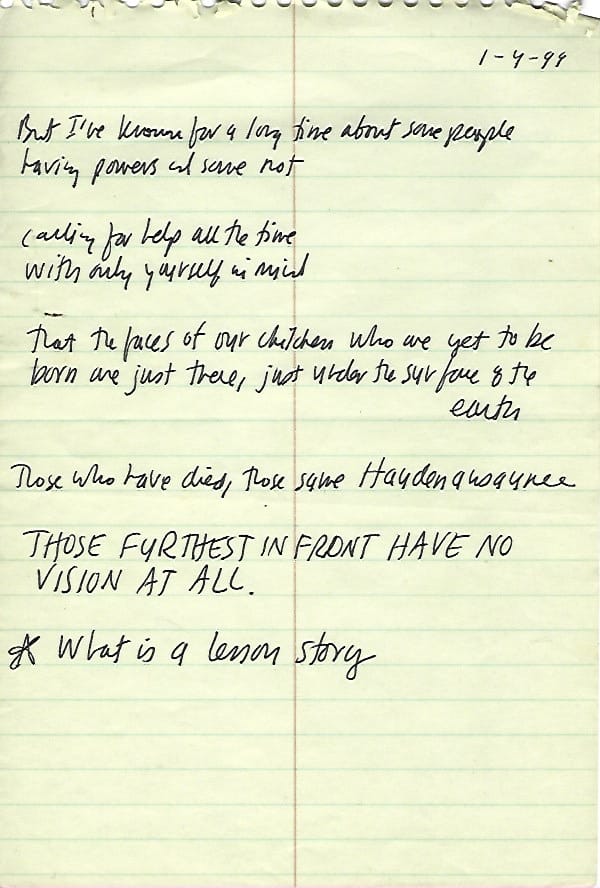 1-4-99
But I've known for a long time about some people
having powers and some not
calling for help all the time
with only yourself in mind
that the faces of our children who are yet to be
born are just there, just under the surface of the
earth
Those who have died, those same Haudenausaunee
THOSE FURTHEST IN FRONT HAVE NO
VISION AT ALL.
* What is a lesson story